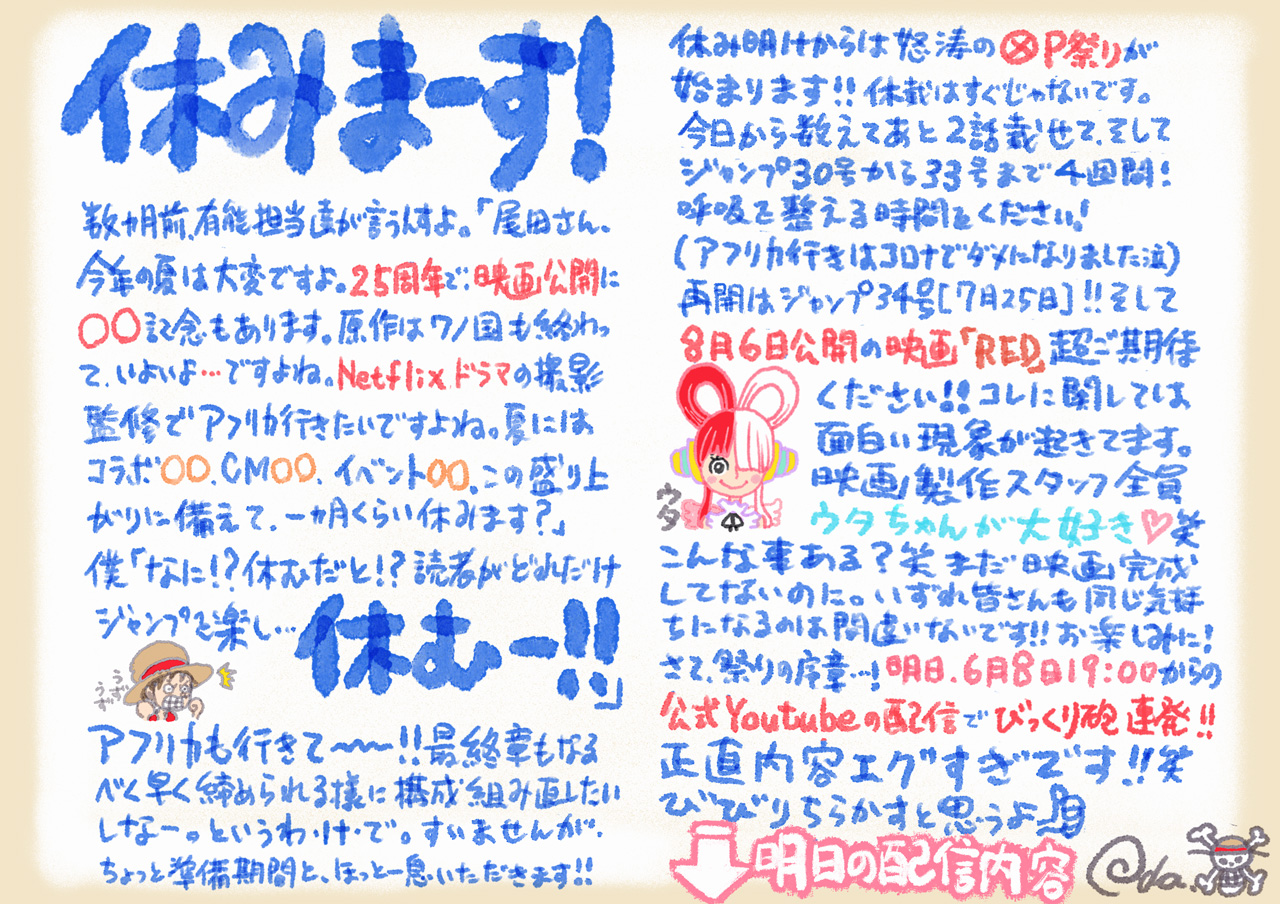 休みまーす!
数カ月前、有能担当達が言うんすよ。「尾田さん、
今年の夏は大変ですよ。25周年で、映画公開に
〇〇記念もあります。原作はワノ国も終わっ
て、いよいよ…ですよね。Netflixドラマの撮影
監修でアフリカ行きたいですよね。夏には
コラボ〇〇、CM〇〇、イベント〇〇、この盛り上
がりに備えて、一カ月くらい休みます?」
僕「なに!?休むだと!?読者がどれだけ
ジャンプを楽し…休むー!!」
うず
うず
アフリカも行きて〜〜!!最終章もなる
べく早く締められる様に構成組み直したい
しなー。というわ・け・で。すいませんが、
ちょっと準備期間と、ほっと一息いただきます!!
休み明けからは怒涛のⓍP祭りが
始まります!!休載はすぐじゃないです。
今日から数えてあと2話載せて、そして
ジャンプ30号から33号まで4週間!
呼吸を整える時間をください!
(アフリカ行きはコロナでダメになりました泣)
再開はジャンプ34号[7月25日]!!そして
8月6日公開の映画「RED」超ご期待
ください!!コレに関しては
面白い現象が起きてます。
映画製作スタッフ全員
ウタ
ウタちゃんが大好き♡笑
こんな事ある?笑 まだ映画完成
してないのに。いずれ皆さんも同じ気持
ちになるのは間違いないです!!お楽しみに!
さて、祭りの序章…!明日、6月8日19:00からの
公式Youtubeの配信でびっくり砲連発!!
正直内容エグすぎです!!笑
びびりちらかすと思うよ
↓明日の配信内容
Oda.